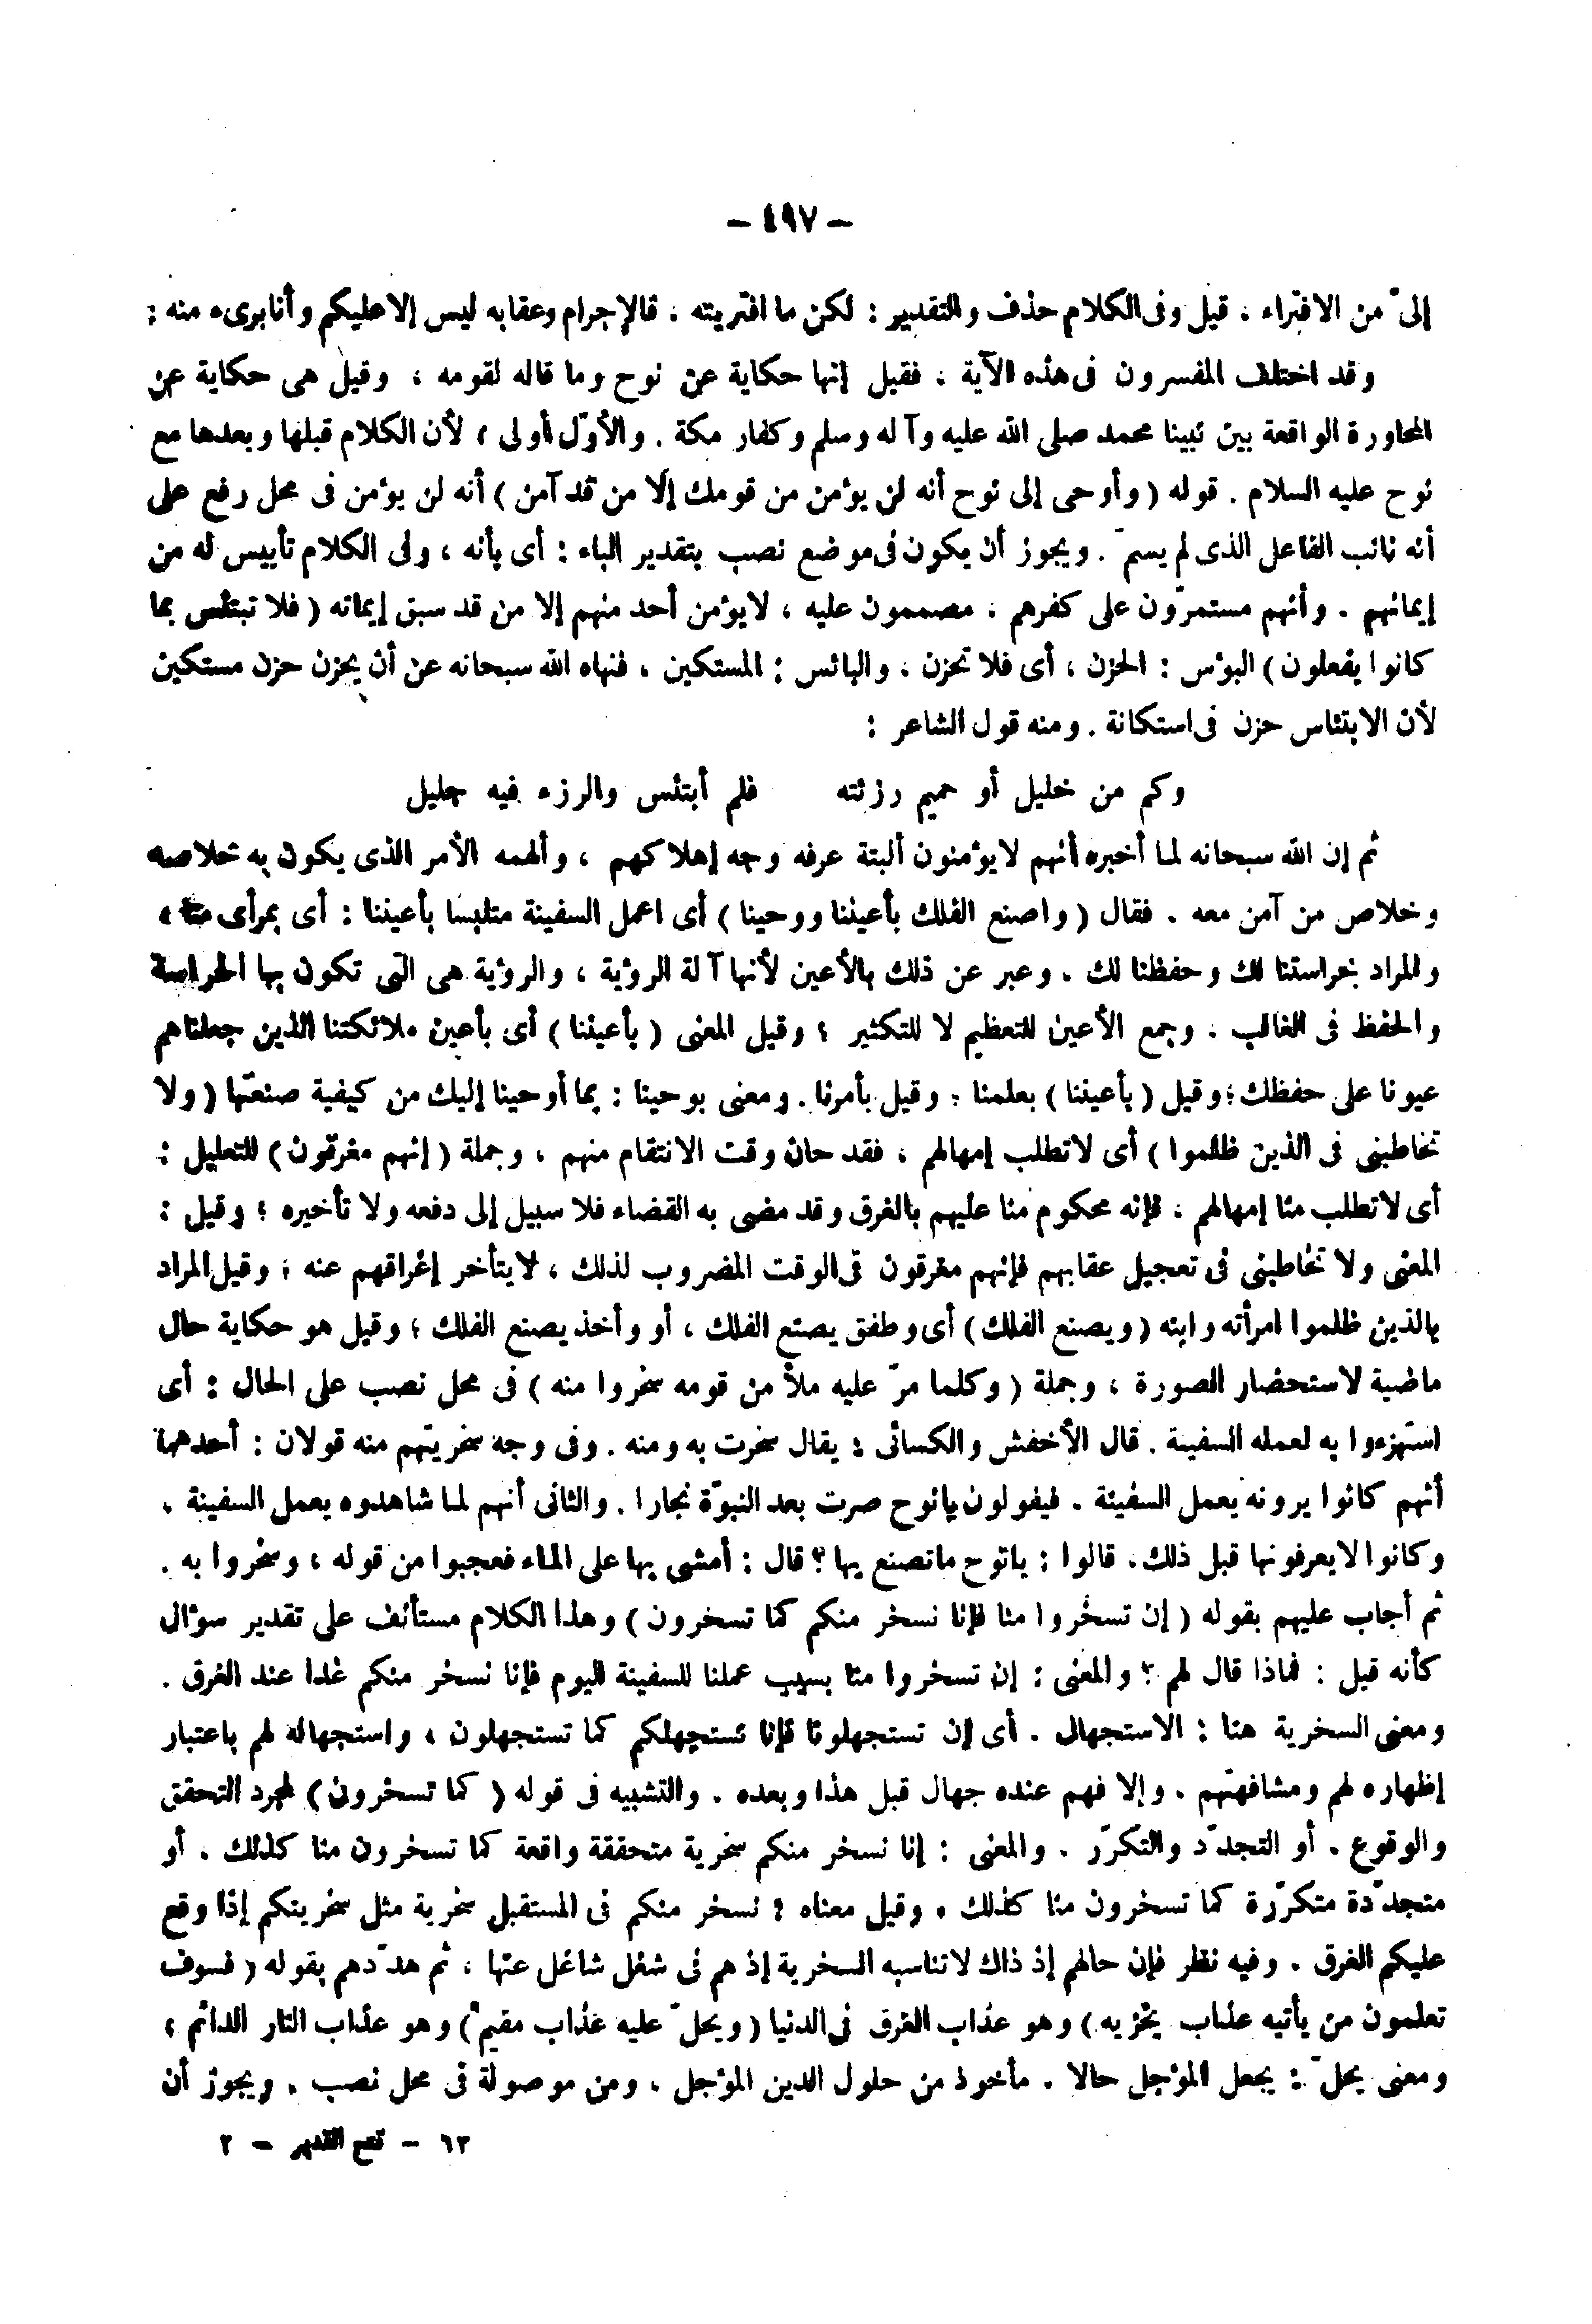 - ٤٩٧ -
إلىّ من الافتراء ، قيل وفى الكلام حذف والتقدير : لكن ما افتريته ، فالإجرام وعقابه ليس إلا عليكم وأنا برىء منه :
وقد اختلف المفسرون فى هذه الآية ، فقيل إنها حكاية عن نوح وما قاله لقومه ، وقيل هى حكاية عن
المحاورة الواقعة بين نبينا محمد صلى الله عليه وآله وسلم وكفار مكة . والأوّل أولى ، لأن الكلام قبلها وبعدها مع
نوح عليه السلام . قوله ( وأوحى إلى نوح أنه لن يؤمن من قومك إلا من قد آمن ) أنه لن يؤمن فى محل رفع على
أنه نائب الفاعل الذى لم يسمّ . ويجوز أن يكون فى موضع نصب بتقدير الباء : أى بأنه ، وفى الكلام تأييس له من
إيمانهم . وأنهم مستمرّون على كفرهم ، مصممون عليه ، لا يؤمن أحد منهم إلا من قد سبق إيمانه ( فلا تبتئس بما
كانوا يفعلون ) البؤس : الحزن ، أى فلا تحزن ، والبائس : المستكين ، فنهاه الله سبحانه عن أن يحزن حزن مستكين
لأن الابتئاس حزن فى استكانة . ومنه قول الشاعر :
وكم من خليل أو حميم رزئته فلم أبتئس والرزء فيه جليل
ثم إن الله سبحانه لما أخبره أنهم لا يؤمنون ألبتة عرفه وجه إهلاكهم ، وألهمه الأمر الذى يكون به خلاصه
وخلاص من آمن معه . فقال ( واصنع الفلك بأعيننا ووحينا ) أى اعمل السفينة متلبسا بأعيننا : أى بمرأى منا ،
والمراد بحراستنا لك وحفظنا لك . وعبر عن ذلك بالأعين لأنها آلة الرؤية ، والرؤية هى التى تكون بها الحراسة
والحفظ فى الغالب ، وجمع الأعين للتعظيم لا للتكثير ؛ وقيل المعنى ( بأعيننا ) أى بأعين ملائكتنا الذين جعلناهم
عيونا على حفظك ؛ وقيل ( بأعيننا ) بعلمنا ؛ وقيل بأمرنا . ومعنى بوحينا : بما أوحينا إليك من كيفية صنعتها ( ولا
تخاطبنى فى الذين ظلموا ) أى لا تطلب إمهالهم ، فقد حان وقت الانتقام منهم ، وجملة ( إنهم مغرقون ) للتعليل :
أى لا تطلب منا إمهالهم ، فإنه محكوم منا عليهم بالغرق وقد مضى به القضاء فلا سبيل إلى دفعه ولا تأخيره ؛ وقيل :
المعنى ولا تخاطبنى فى تعجيل عقابهم فإنهم مغرقون فى الوقت المضروب لذلك ، لا يتأخر إغراقهم عنه ؛ وقيل المراد
بالذين ظلموا امرأته وابنه ( ويصنع الفلك ) أى وطفق يصنع الفلك ، أو وأخذ يصنع الفلك ؛ وقيل هو حكاية حال
ماضية لاستحضار الصورة ، وجملة ( وكلما مرّ عليه ملأ من قومه سخروا منه ) فى محل نصب على الحال : أى
استهزءوا به لعمله السفينة . قال الأخفش والكسائى : يقال سخرت به ومنه . وفى وجه سخريتهم منه قولان : أحدهما
أنهم كانوا يرونه يعمل السفينة . فيقولون يا نوح صرت بعد النبوّة نجارا . والثانى أنهم لما شاهدوه يعمل السفينة ،
وكانوا لا يعرفونها قبل ذلك ، قالوا : يا نوح ما تصنع بها ؟ قال : أمشى بها على الماء فعجبوا من قوله ، وسخروا به .
ثم أجاب عليهم بقوله ( إن تسخروا منا فإنا نسخر منكم كما تسخرون ) وهذا الكلام مستأنف على تقدير سؤال
كأنه قيل : فماذا قال لهم ؟ والمعنى : إن تسخروا منا بسبب عملنا للسفينة اليوم فإنا نسخر منكم غدا عند الغرق .
ومعنى السخرية هنا : الاستجهال . أى إن تستجهلونا فإنا نستجهلكم كما تستجهلون ، واستجهاله لهم باعتبار
إظهاره لهم ومشافهتهم . وإلا فهم عنده جهال قبل هذا وبعده . والتشبيه فى قوله ( كما تسخرون ) لمجرد التحقق
والوقوع . أو التجدّد والتكرّر . والمعنى : إنا نسخر منكم سخرية متحققة واقعة كما تسخرون منا كذلك ، أو
متجدّدة متكرّرة كما تسخرون منا كذلك ، وقيل معناه : نسخر منكم فى المستقبل سخرية مثل سخريتكم إذا وقع
عليكم الغرق . وفيه نظر فإن حالهم إذ ذاك لا تناسبه السخرية إذ هم فى شغل شاغل عنها ، ثم هدّدهم بقوله ( فسوف
تعلمون من يأتيه عذاب يخزيه ) وهو عذاب الغرق فى الدنيا ( ويحلّ عليه عذاب مقيم ) وهو عذاب النار الدائم ،
ومعنى يحلّ : يجعل المؤجل حالا . مأخوذ من حلول الدين المؤجل ، ومن موصولة فى محل نصب ، ويجوز أن
٦٣ - فتح القدير - ٢